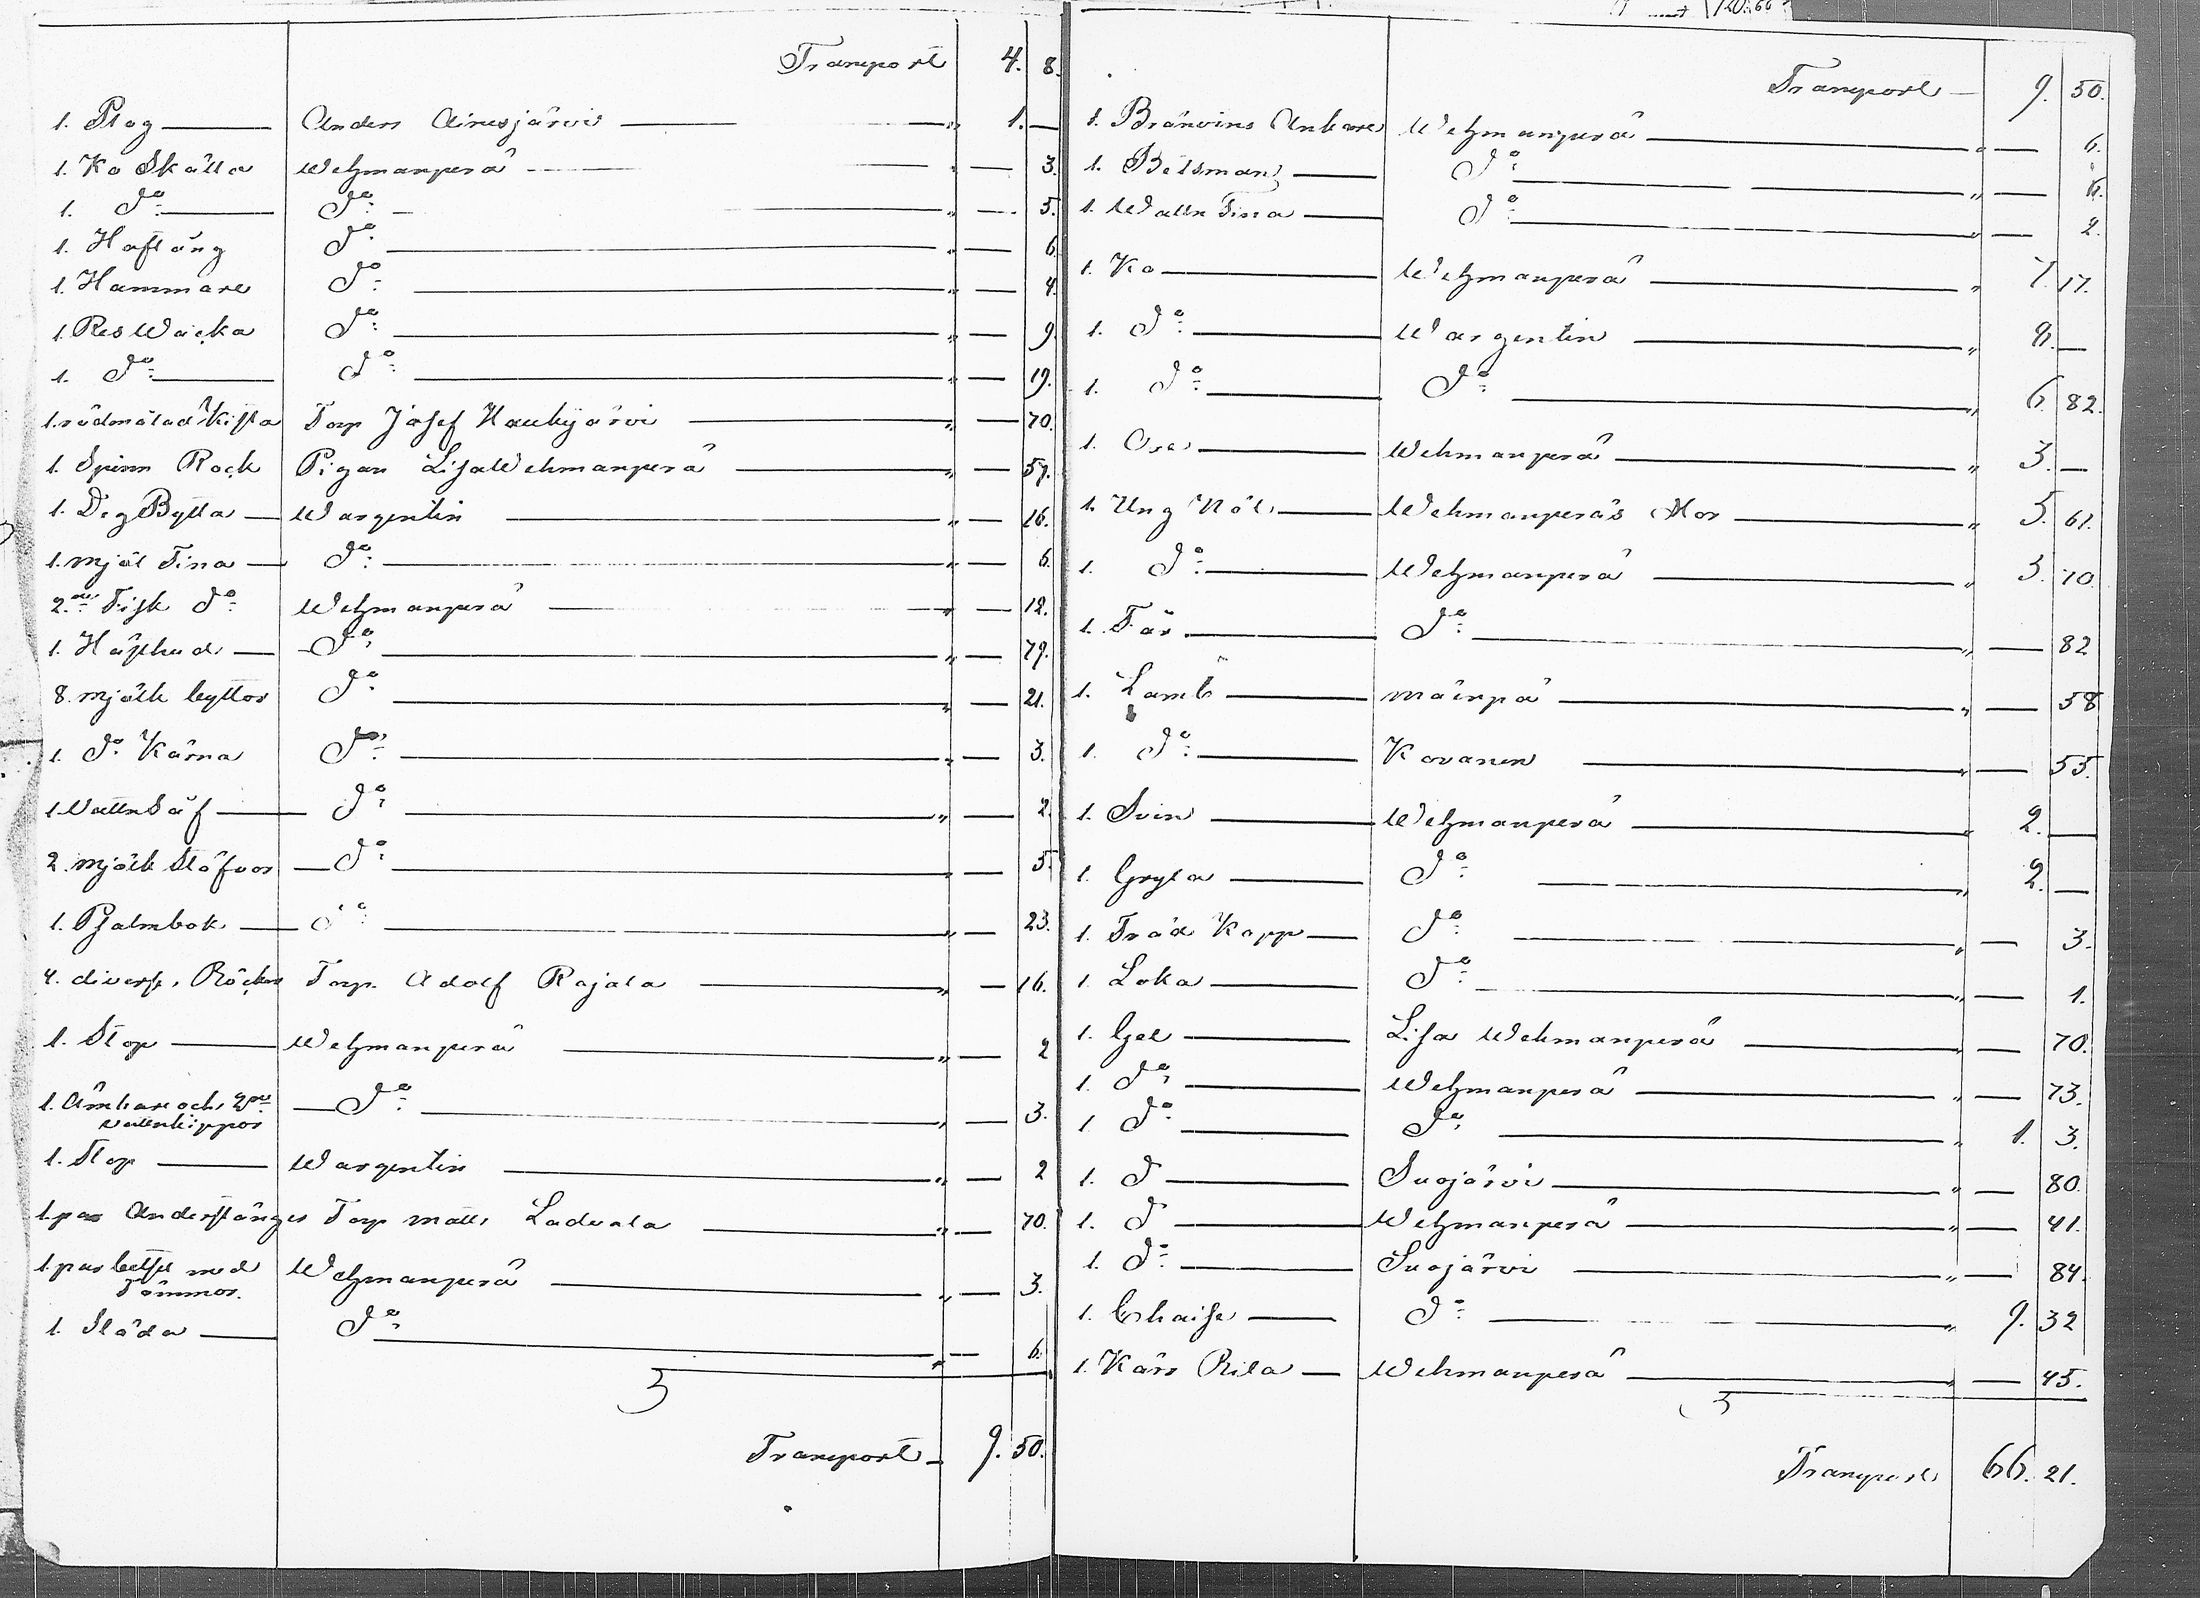 Transport 4. 8.
1. Plog Anders Ainesjärvi " 1. —
1. Ko Skälla Wehmanperä — 3.
1. Do Do " — 5.
1. Hoftång Do " — 6.
1. Hammare Do " — 4.
1. Res Wäcka Do " — 9.
1. Do Do " — 19.
1. rödmålad Kista Torp Josef Haukijärvi " — 70.
1. Spinn Rock Pigan Lisa Wehmanperä " — 57.
1. Deg Bytta Wargentin " — 16.
1. mjöl Tina Do " — 6.
2. Fisk Do Wehmanperä " — 12.
1. Hästhud Do " — 79.
8. mjölk byttor Do " — 21.
1. Do Kärna Do " — 3.
1. Vattn Såf Do " — 2.
2. mjölk Stäfvor Do " — 5.
1. Psalmbok Do " — 23.
4. diverse Böcker Torp. Adolf Rajala " — 16.
1. Stop Wehmanperä " — 2
1. Ämbare och 2ne Do " — 3.
vattukippor
1. Stop Wargentin " — 2
1. par Anderstänger Torp matts Laduala " — 70.
1. par betsel med Wehmanperä " — 3.
Tömmor.
1. Släda Do " — 6.
Transport 9. 50.
Transport 9. 50.
1. Bränvins Ankare Wehmanperä " — 6.
1. Betsman Do " — 6.
1. Wattn Tina Do " — 2.
1. Ko Wehmanperä " 7. 17.
1. Do Wargentin " 8. —
1. Do Do " 6. 82.
1. Oxe Wehmanperä " 3. —
1. Ung Nöt Wehmanperäs Mor " 5. 61.
1. Do Wehmanperä " 3. 70.
1. Får Do " — 82
1. Lamb mäenpä " — 58
1. Do Kovanen " — 55.
1. Svin Wehmanperä " 2. —
1. Gryta Do " 2. —
1. Träd Kopp Do " — 3.
1. Loka Do " — 1.
1. Gel Lisa Wehmanperä " — 70.
1. Do Wehmanperä " — 73.
1 Do Do " 1. 3.
1. D Suojärvi " — 80.
1. D Wehmanperä " — 41.
1. Do Suojärvi " — 84.
1. Chaise Do " 9. 32
1. Kärr Rila Wehmanperä " — 45.
Transport 66. 21.